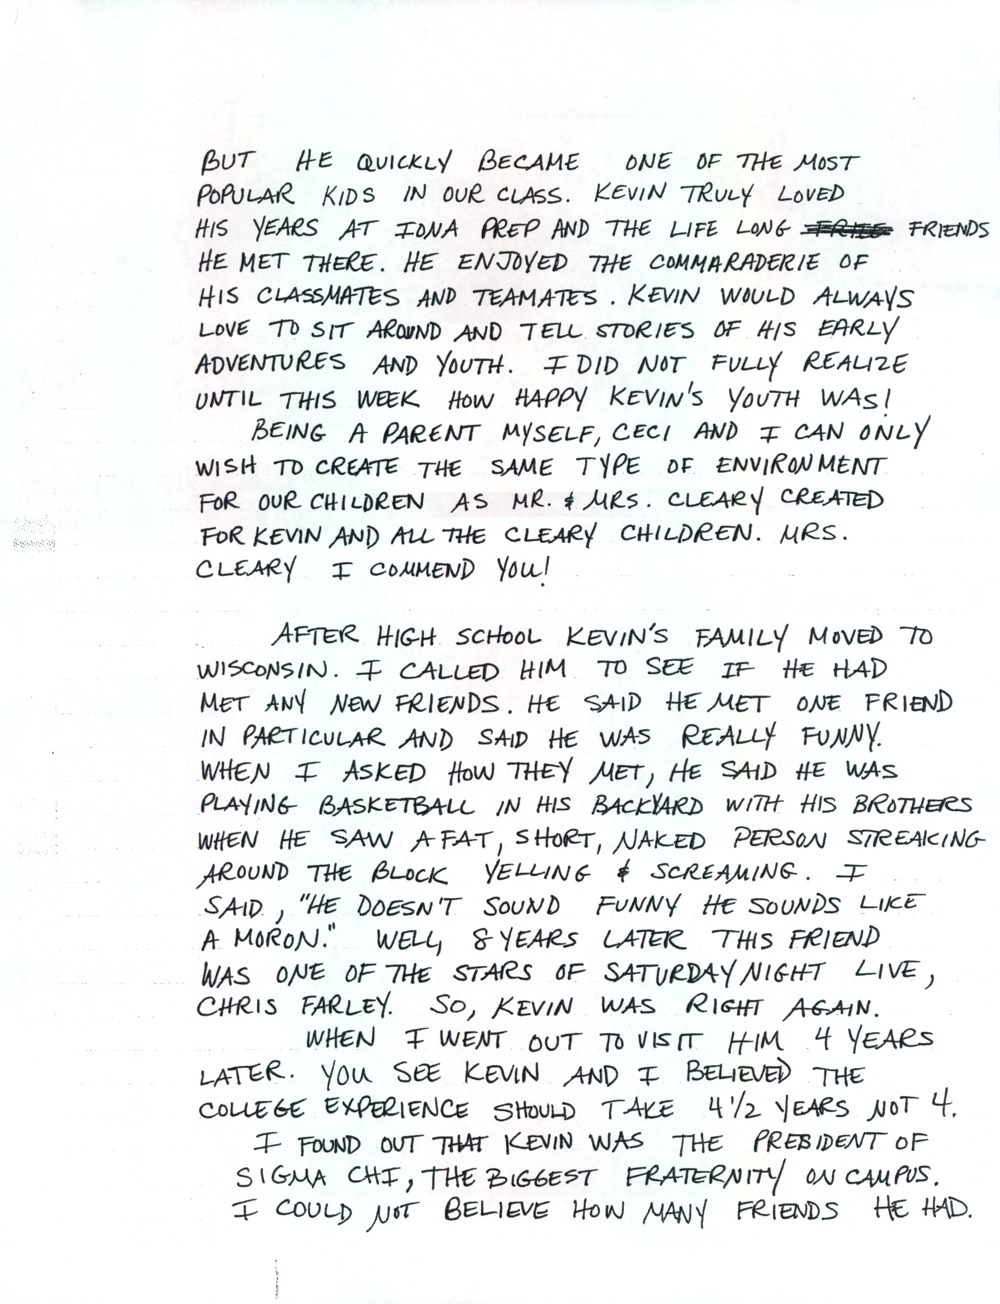 BUT HE QUICKLY BECAME ONE OF THE MOST
POPULAR KIDS IN OUR CLASS. KEVIN TRULY LOVED
HIS YEARS AT IONA PREP AND THE LIFE LONG FRIENDS
HE MET THERE. HE ENJOYED THE COMMARADERIE OF
HIS CLASSMATES AND TEAMATES. KEVIN WOULD ALWAYS
LOVE TO SIT AROUND AND TELL STORIES OF HIS EARLY
ADVENTURES AND YOUTH. I DID NOT FULLY REALIZE
UNTIL THIS WEEK HOW HAPPY KEVIN'S YOUTH WAS!
BEING A PARENT MYSELF, CECI AND I CAN ONLY
WISH TO CREATE THE SAME TYPE OF ENVIRONMENT
FOR OUR CHILDREN AS MR. & MRS. CLEARY CREATED
FOR KEVIN AND ALL THE CLEARY CHILDREN. MRS.
CLEARY I COMMEND YOU!
AFTER HIGH SCHOOL KEVIN'S FAMILY MOVED TO
WISCONSIN. I CALLED HIM TO SEE IF HE HAD
MET ANY NEW FRIENDS. HE SAID HE MET ONE FRIEND
IN PARTICULAR AND SAID HE WAS REALLY FUNNY.
WHEN I ASKED HOW THEY MET, HE SAID HE WAS
PLAYING BASKETBALL IN HIS BACKYARD WITH HIS BROTHERS
WHEN HE SAW A FAT, SHORT, NAKED PERSON STREAKING
AROUND THE BLOCK YELLING & SCREAMING. I
SAID, "HE DOESN'T SOUND FUNNY HE SOUNDS LIKE
A MORON." WELL, 8 YEARS LATER THIS FRIEND
WAS ONE OF THE STARS OF SATURDAY NIGHT LIVE,
CHRIS FARLEY. SO, KEVIN WAS RIGHT AGAIN.
WHEN I WENT OUT TO VISIT HIM 4 YEARS
LATER. YOU SEE KEVIN AND I BELIEVED THE
COLLEGE EXPERIENCE SHOULD TAKE 4 1/2 YEARS NOT 4.
I FOUND OUT THAT KEVIN WAS THE PRESIDENT OF
SIGMA CHI, THE BIGGEST FRATERNITY ON CAMPUS.
I COULD NOT BELIEVE HOW MANY FRIENDS HE HAD.